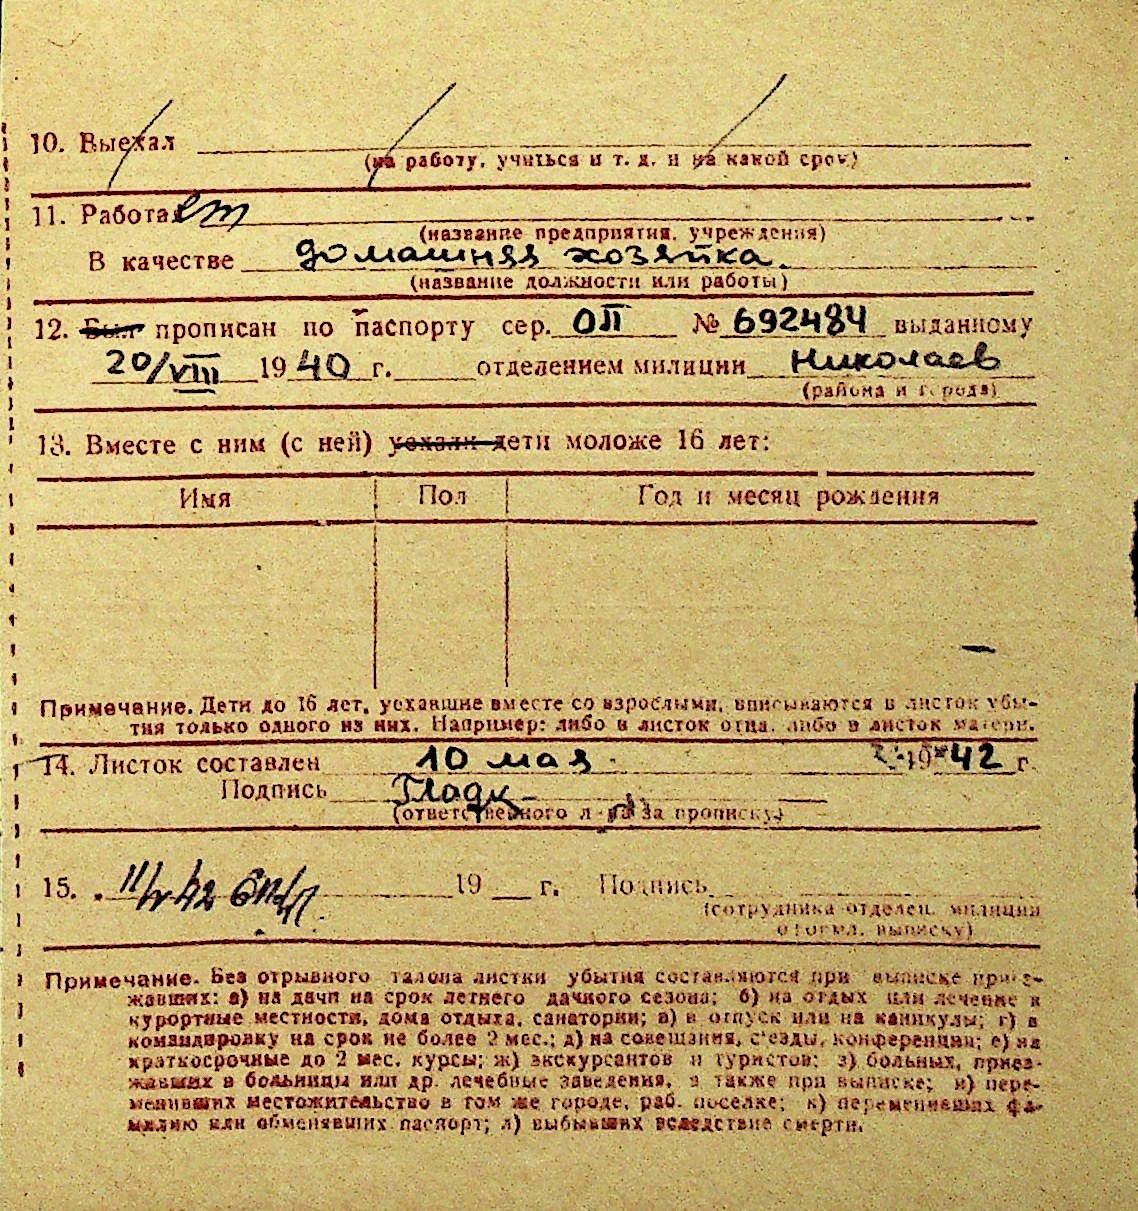 10. Выехал
(на работу, учиться и т. д. и на какой срок)
11. Работает
(название предприятия, учреждения)
В качестве домашняя хозяйка.
(название должности или работы)
12. Был прописан по паспорту сер. ОП № 692484 выданному
20/VIII 1940 г. отделением милиции Николаев
(района и города)
13. Вместе с ним (с ней) уехали дети моложе 16 лет:
Имя Пол Год и месяц рождения
Примечание. Дети до 16 лет, уехавшие вместе со взрослыми, вписываются в листок убы-
тия только одного из них. Например: либо в листок отца, либо в листок матери.
14. Листок составлен 10 мая 1942 г.
Подпись
(ответственного л-ца за прописку)
15. 11/V 42 19 г. Подпись
(сотрудника отделен. милиции
оформл. выписку)
Примечание. Без отрывного талона листки убытия составляются при выписке приез-
жавших: а) на дачи на срок летнего дачного сезона; б) на отдых или лечение в
курортные местности, дома отдыха, санатории; в) в отпуск или на каникулы; г) в
командировку на срок не более 2 мес.; д) на совещания, с'езды, конференции; е) на
краткосрочные до 2 мес. курсы; ж) экскурсантов и туристов; з) больных, приез-
жавших в больницы или др. лечебные заведения, а также при выписке; и) пере-
менивших местожительство в том же городе, раб. поселке; к) переменивших фа-
милию или обменявших паспорт; л) выбывших вследствие смерти.